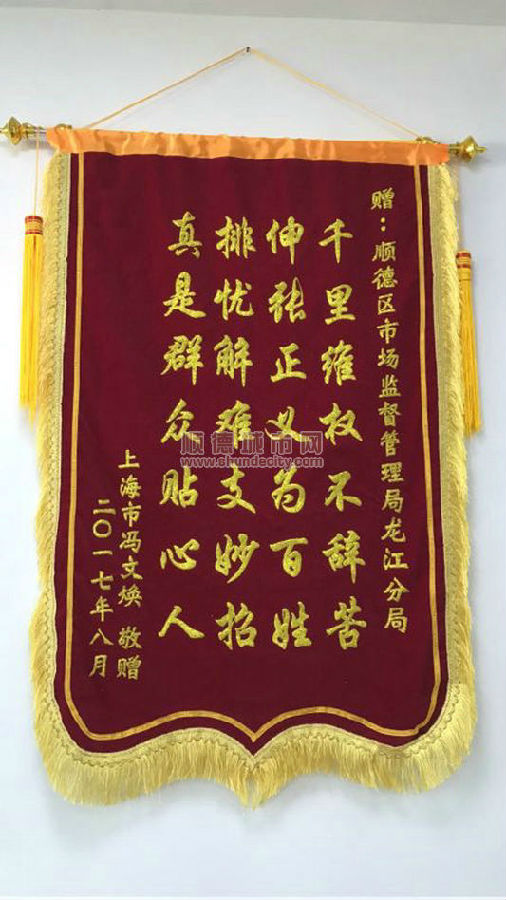 赠：顺德区市场监督管理局龙江分局
千里维权不辞苦
伸张正义为百姓
排忧解难支妙招
真是群众贴心人
上海市冯文焕 敬赠
二〇一七年八月
顺德城市网
www.shundecity.com